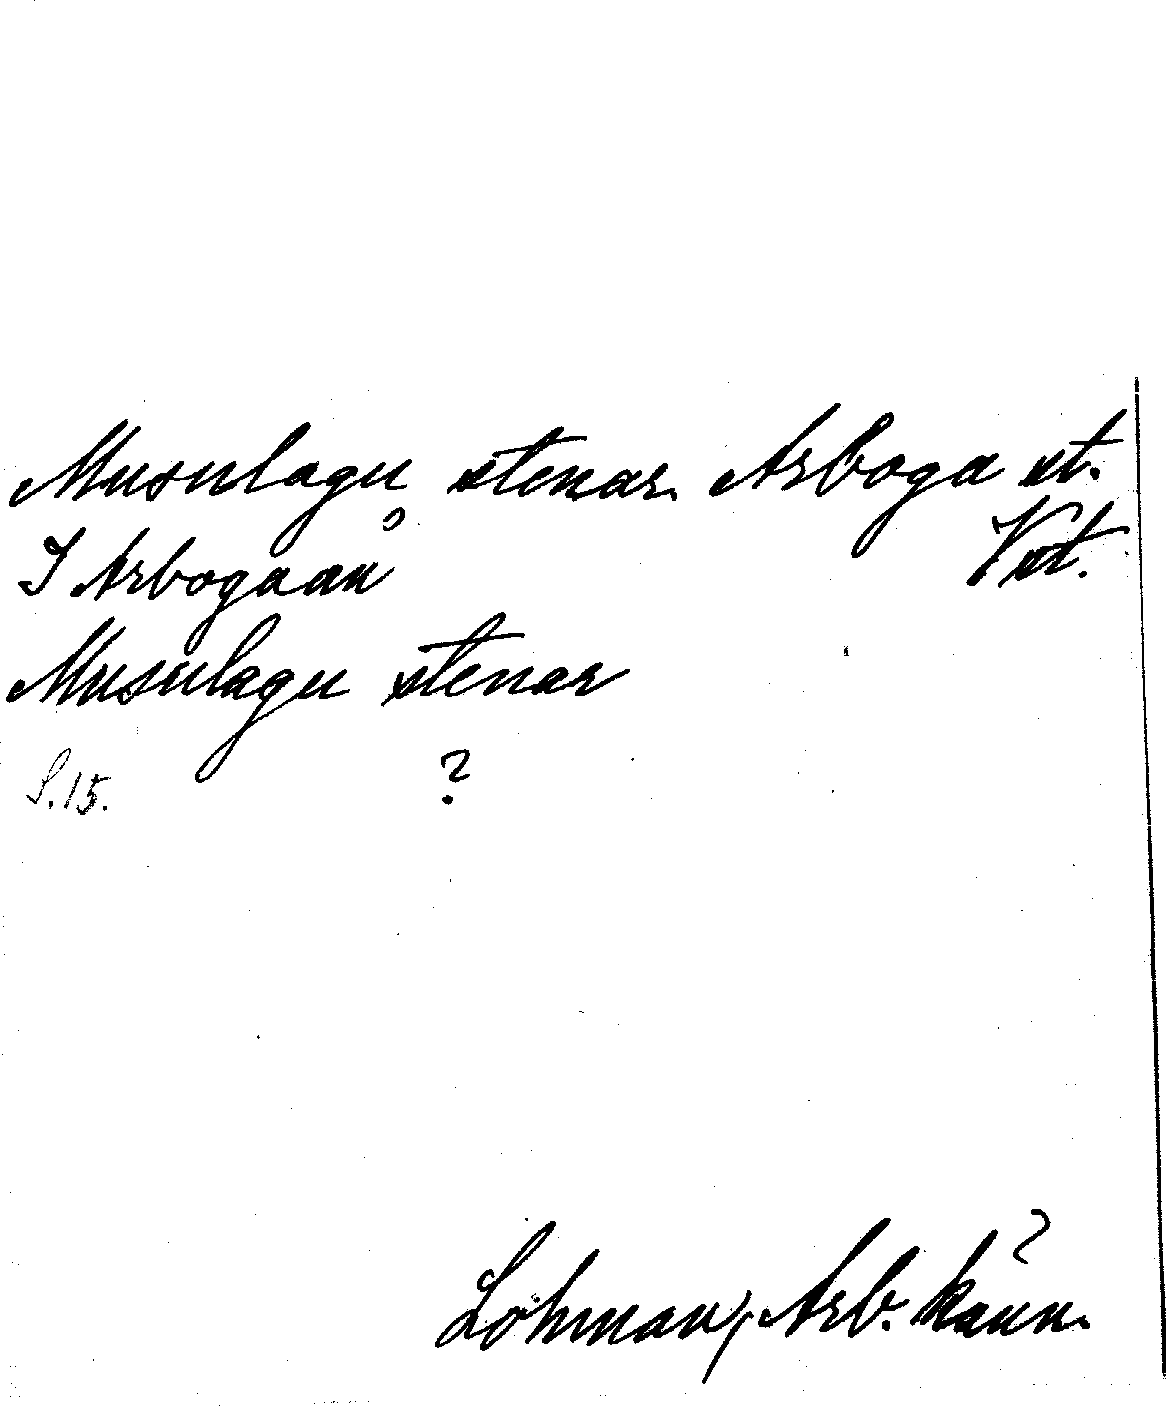 Musulagu stenar. Arboga st.
I Arbogaån Vst.
Musulagu stenar
S. 15. ?
Löhman, Arb. känn.